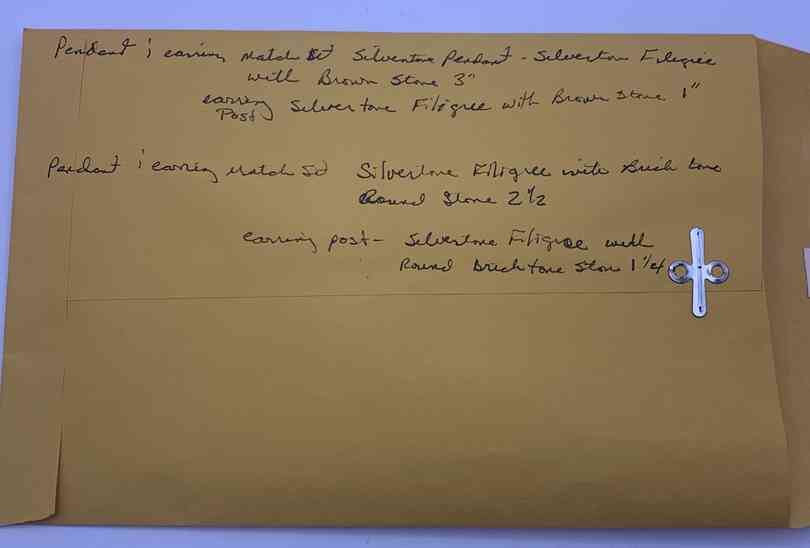 Pendant & earring Match Set Silvertone Pendant - Silvertone Filigree
with Brown Stone 3"
earring Silvertone Filigree with Brown Stone 1"
Post
Pendant & earring Match Set Silvertone Filigree with Brick tone
Round Stone 2 1/2
earring post - Silvertone Filigree with
Round Bricktone Stone 1 1/4